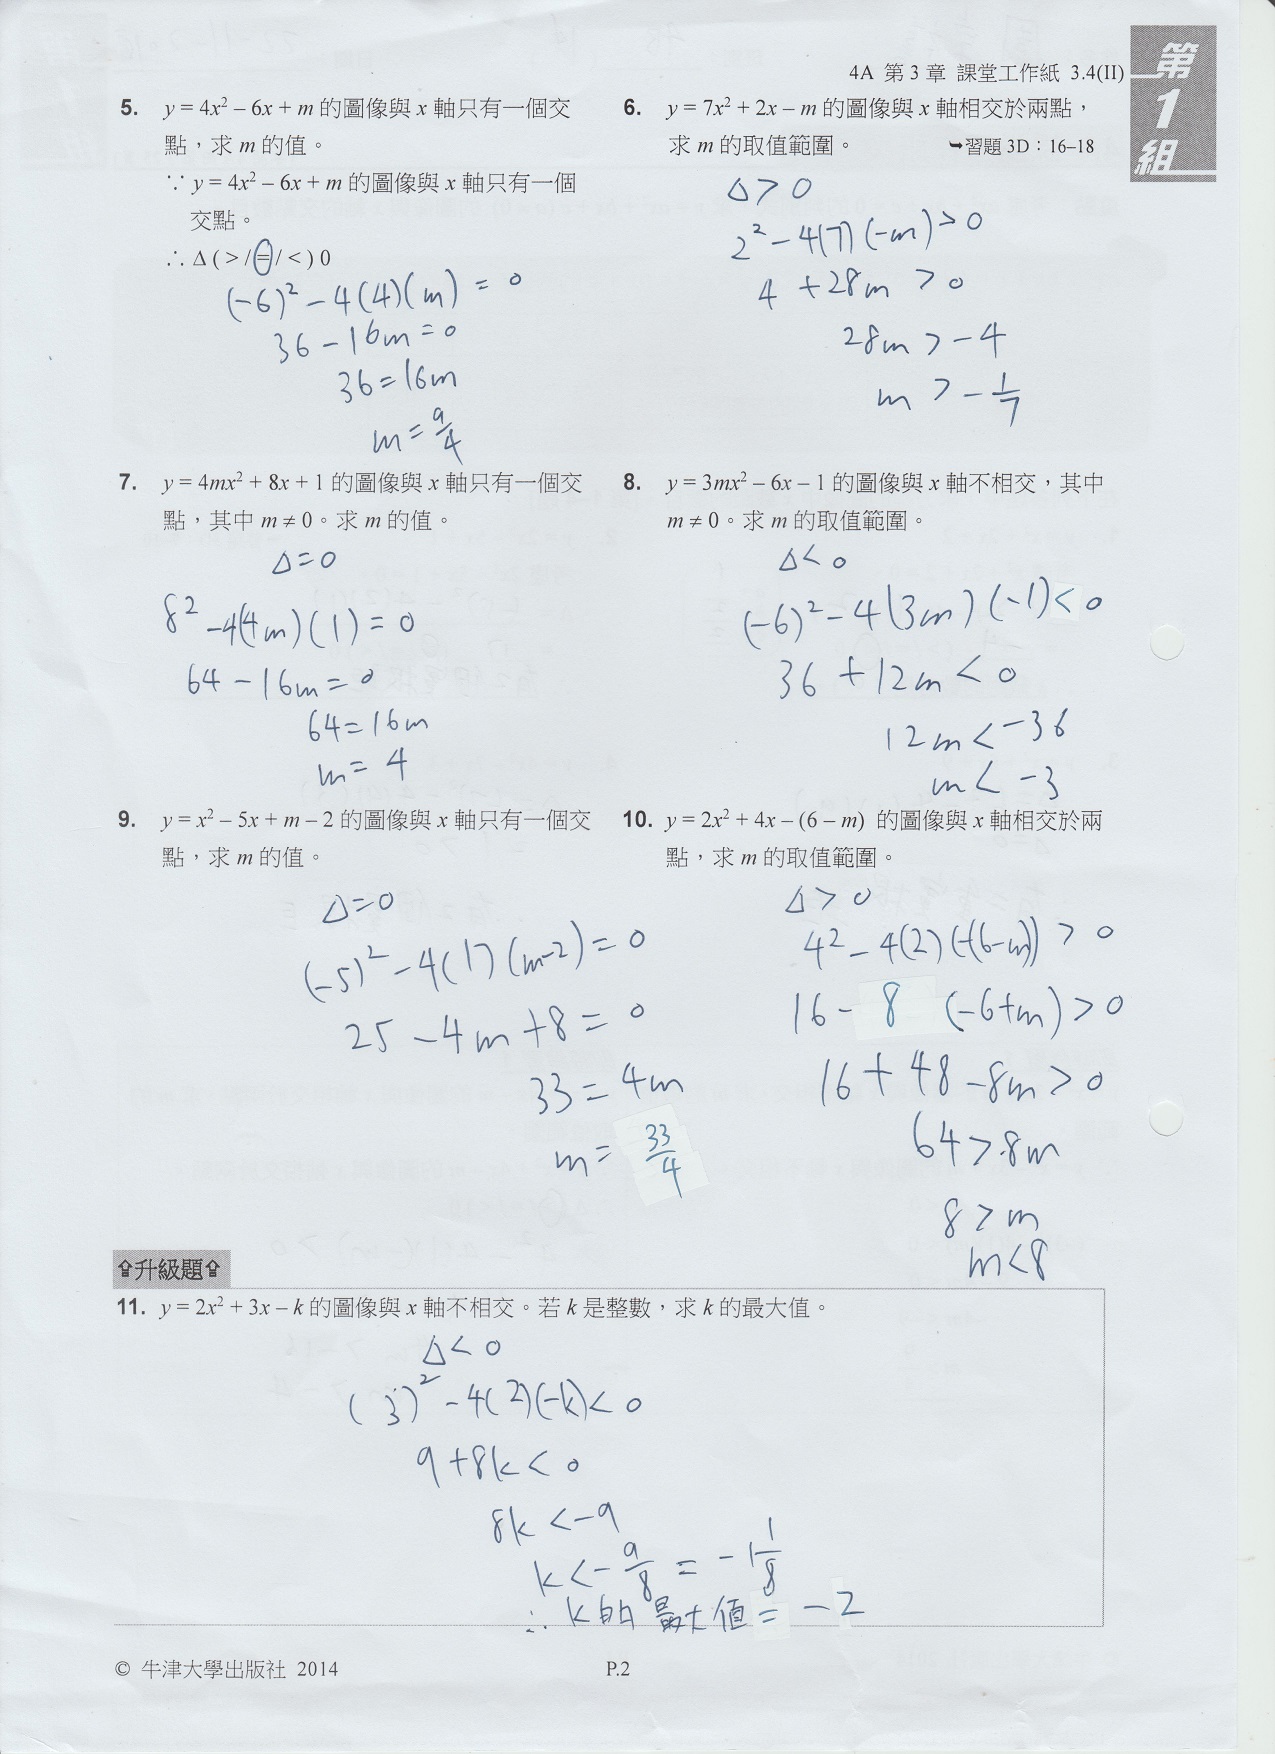 4A 第 3 章 課堂工作紙 3.4(II)
第
1
組
5. y = 4x² – 6x + m 的圖像與 x 軸只有一個交
點，求 m 的值。
∵ y = 4x² – 6x + m 的圖像與 x 軸只有一個
交點。
∴ Δ ( > / = / < ) 0
(-6)² - 4(4)(m) = 0
36 - 16m = 0
36 = 16m
m = 9/4
6. y = 7x² + 2x – m 的圖像與 x 軸相交於兩點，
求 m 的取值範圍。 ➥習題 3D：16–18
Δ > 0
2² - 4(7)(-m) > 0
4 + 28m > 0
28m > -4
m > -1/7
7. y = 4mx² + 8x + 1 的圖像與 x 軸只有一個交
點，其中 m ≠ 0。求 m 的值。
Δ = 0
8² - 4(4m)(1) = 0
64 - 16m = 0
64 = 16m
m = 4
8. y = 3mx² – 6x – 1 的圖像與 x 軸不相交，其中
m ≠ 0。求 m 的取值範圍。
Δ < 0
(-6)² - 4(3m)(-1) < 0
36 + 12m < 0
12m < -36
m < -3
9. y = x² – 5x + m – 2 的圖像與 x 軸只有一個交
點，求 m 的值。
Δ = 0
(-5)² - 4(1)(m-2) = 0
25 - 4m + 8 = 0
33 = 4m
m = 33/4
10. y = 2x² + 4x – (6 – m) 的圖像與 x 軸相交於兩
點，求 m 的取值範圍。
Δ > 0
4² - 4(2)(-(6-m)) > 0
16 - 8 (-6+m) > 0
16 + 48 - 8m > 0
64 > 8m
8 > m
m < 8
⇧升級題⇧
11. y = 2x² + 3x – k 的圖像與 x 軸不相交。若 k 是整數，求 k 的最大值。
Δ < 0
(3)² - 4(2)(-k) < 0
9 + 8k < 0
8k < -9
k < -9/8 = -1 1/8
∴ k的 最大值 = -2
© 牛津大學出版社 2014
P.2